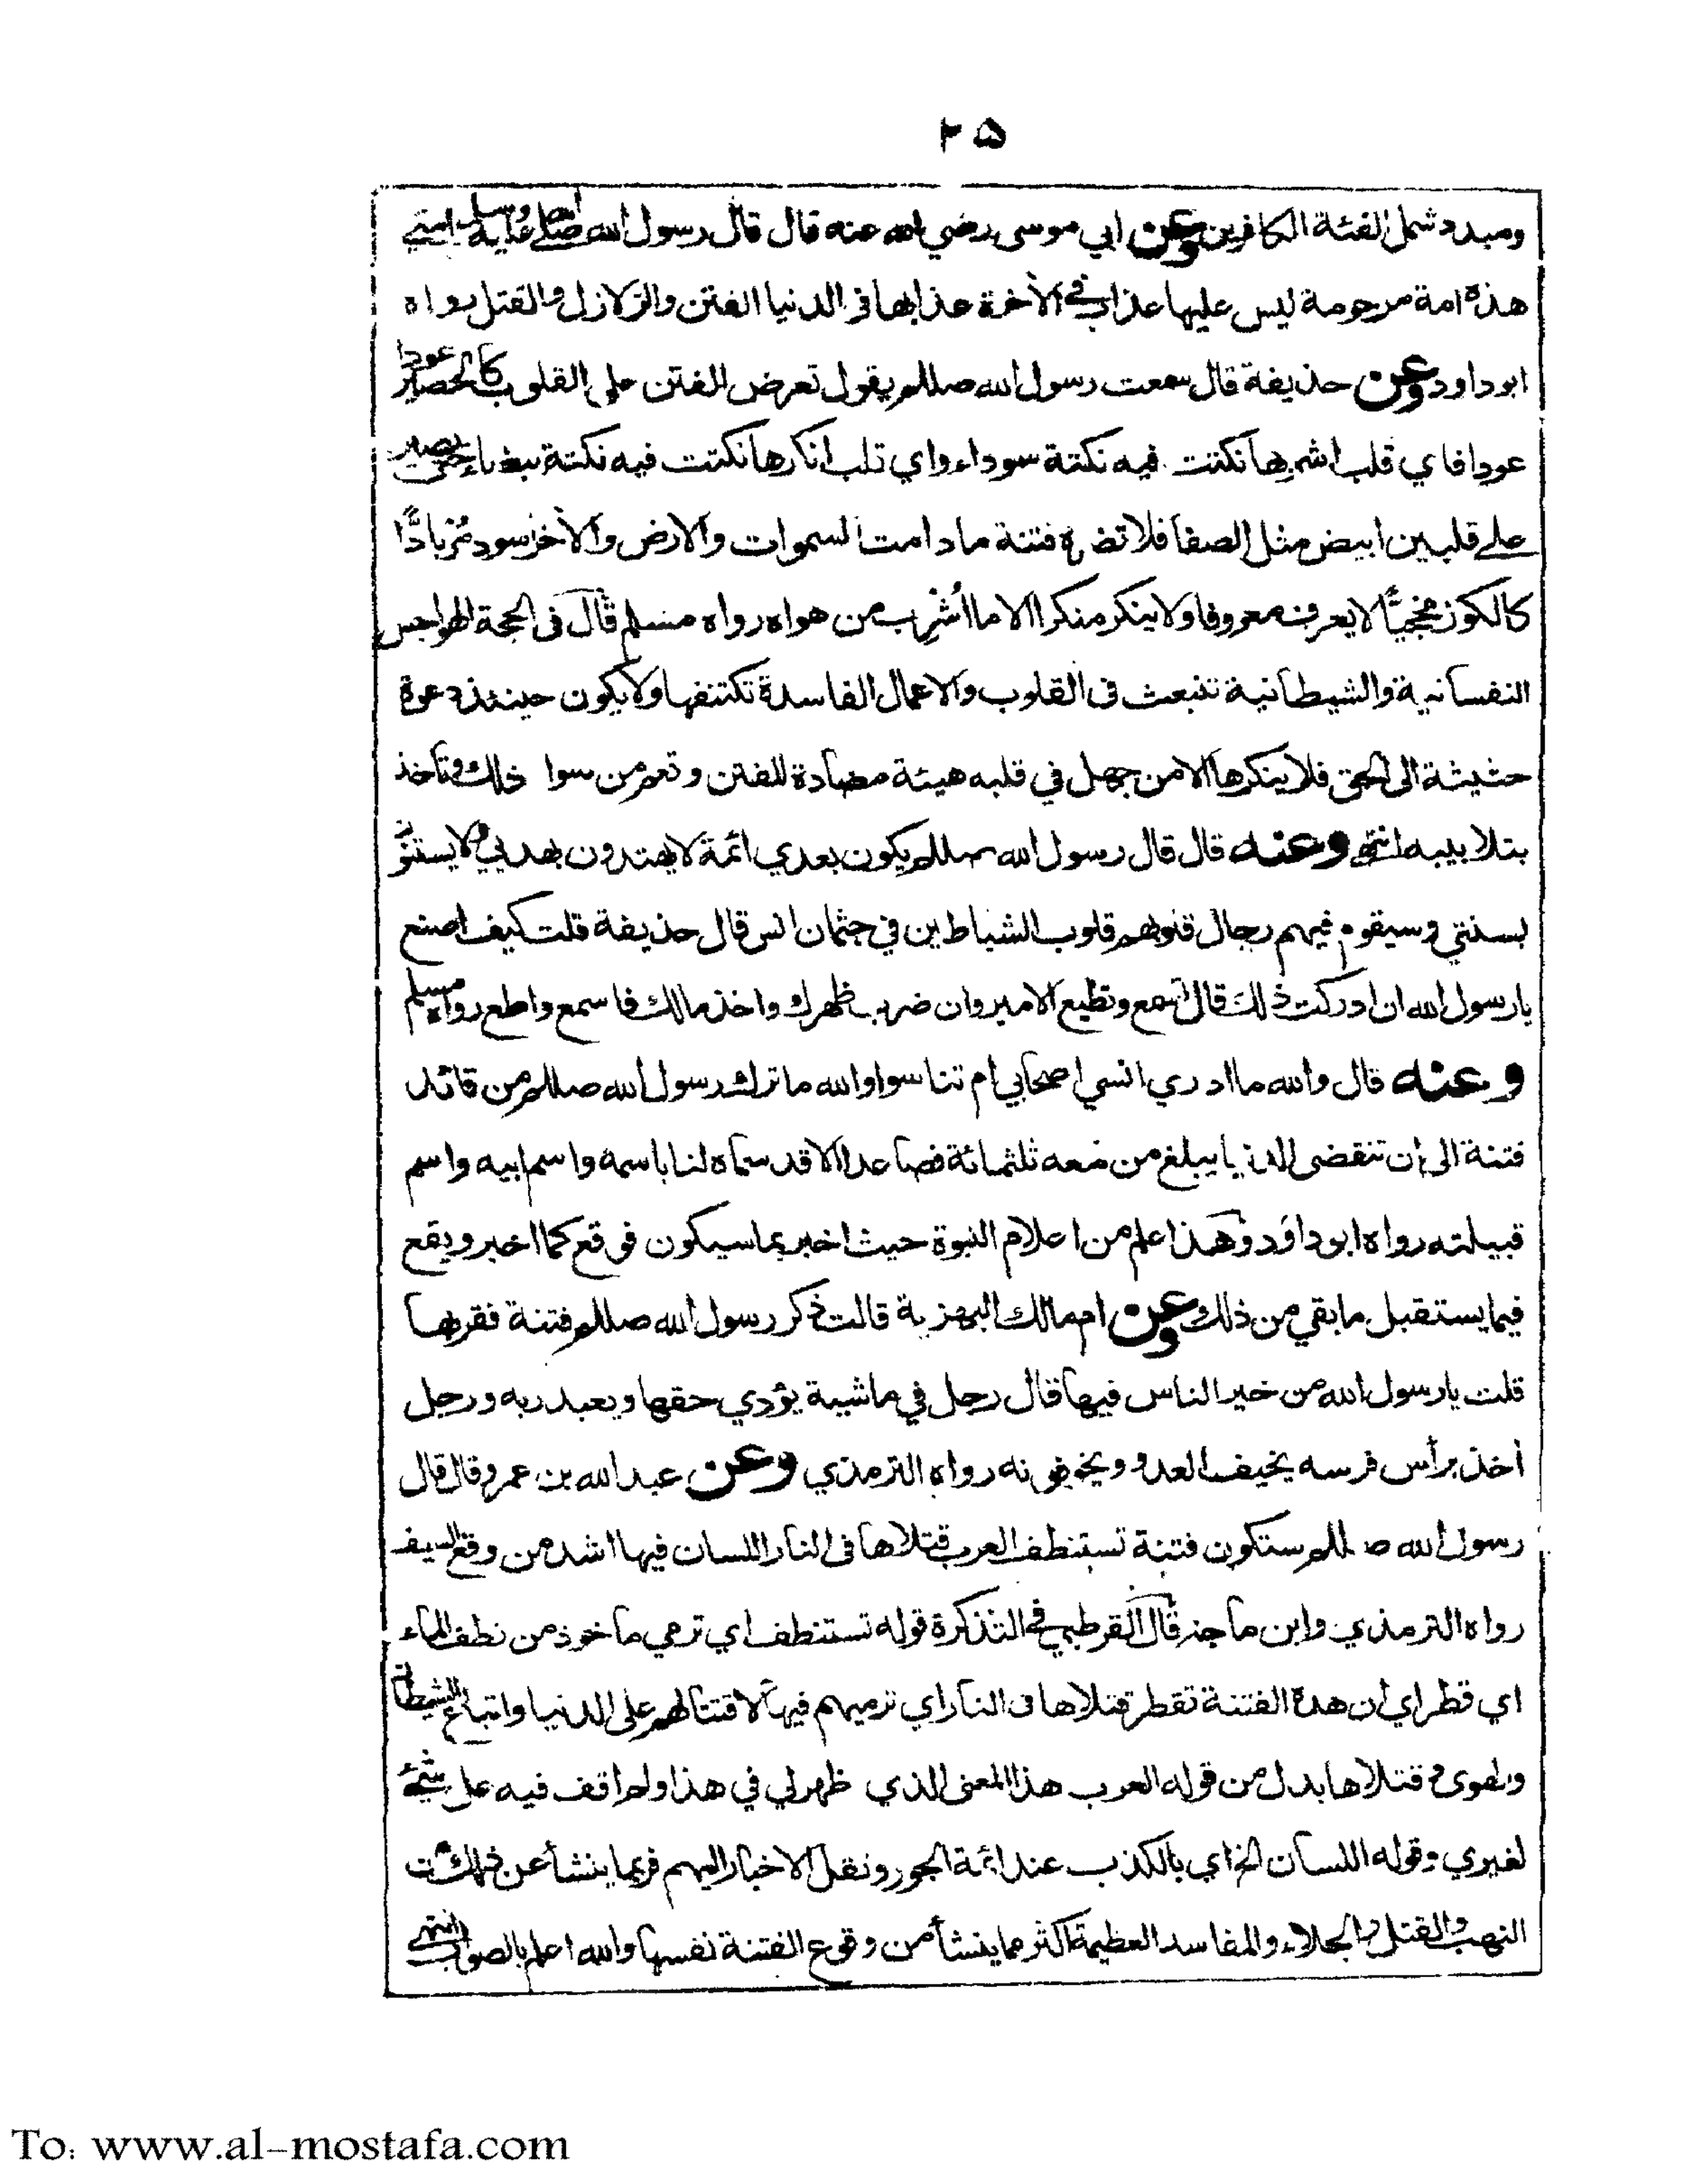 ٢٥
ومبدد شمل الفئة الكافرين وعن ابي موسى رضي الله عنه قال قال رسول الله صلى الله عليه وسلم امتي
هذه امة مرحومة ليس عليها عذاب في الآخرة عذابها في الدنيا الفتن والزلازل والقتل رواه
ابو داود وعن حذيفة قال سمعت رسول الله صللم يقول تعرض الفتن على القلوب كالحصير عودا
عودا فاي قلب اشربها نكتت فيه نكتة سوداء واي قلب انكرها نكتت فيه نكتة بيضاء حتى يصير
على قلبين ابيض مثل الصفا فلا تضره فتنة ما دامت السموات والارض والآخر اسود مُربادًّا
كالكوز مجخيًّا لا يعرف معروفا ولا ينكر منكرا الا ما اُشْرِب من هواه رواه مسلم قال فى الحجة الهواجس
النفسانية والشيطانية تنبعث فى القلوب والاعمال الفاسدة تكتنفها ولا يكون حينئذ دعوة
حثيثة الى الحق فلا ينكرها الا من جهل في قلبه هيئة مضادة للفتن وتعم من سوا ذلك وتاخذ
بتلابيبه انتهى وعنه قال قال رسول الله صللم يكون بعدي ائمة لا يهتدون بهديي ولا يستنون
بسنتي وسيقوم فيهم رجال قلوبهم قلوب الشياطين في جثمان انس قال حذيفة قلت كيف اصنع
يا رسول الله ان ادركت ذلك قال تسمع وتطيع الامير وان ضرب ظهرك واخذ مالك فاسمع واطع رواه مسلم
وعنه قال والله ما ادري انسي اصحابي ام تناسوا والله ما ترك رسول الله صللم من قائد
فتنة الى ان تنقضى الدنيا يبلغ من معه ثلثمائة فصاعدا الا قد سماه لنا باسمه واسم ابيه واسم
قبيلته رواه ابو داود وهذا علم من اعلام النبوة حيث اخبر بما سيكون فوقع كما اخبر ويقع
فيما يستقبل ما بقي من ذلك وعن ام مالك البهزية قالت ذكر رسول الله صللم فتنة فقربها
قلت يا رسول الله من خير الناس فيها قال رجل في ماشية يؤدي حقها ويعبد ربه ورجل
أخذ برأس فرسه يخيف العدو ويخوفونه رواه الترمذي وعن عبد الله بن عمرو قال قال
رسول الله صللم ستكون فتنة تستنطف العرب قتلاها فى النار اللسان فيها اشد من وقع السيف
رواه الترمذي وابن ماجه قال القرطبي في التذكرة قوله تستنطف اي ترمي ماخوذ من نطف الماء
اي قطر اي ان هذه الفتنة تقطر قتلاها فى النار اي ترميهم فيها لاقتتالهم على الدنيا واتباع الشيطان
والهوى وقتلاها بدل من قوله العرب هذا المعنى الذي ظهر لي في هذا ولم اقف فيه على شيء
لغيري وقوله اللسان الخ اي بالكذب عند ائمة الجور ونقل الاخبار اليهم فربما ينشأ عن ذلك من
النهب والقتل والجلاء والمفاسد العظيمة اكثر مما ينشأ من وقوع الفتنة نفسها والله اعلم بالصواب انتهى
To: www.al-mostafa.com